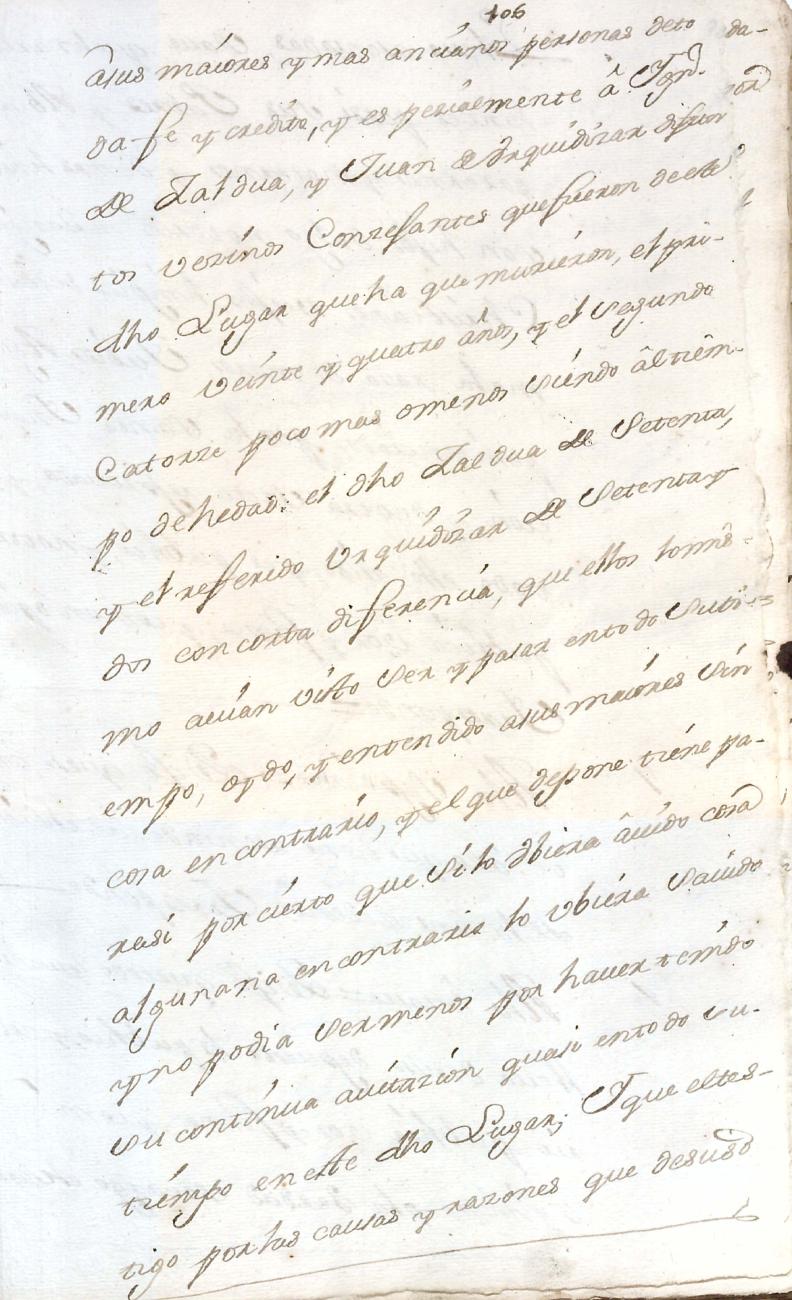 106
asus maiores y mas ancianos personas deto
da fe y credito, y espezialmente â Ygn.º
de Zaldua, y Juan de Urquidizar difun
tos vezinos Conzesantes que fueron de este
dho Lugar que ha que murieron, el pri-
mero veinte y quatro años, y el segundo
Catorze poco mas omenos siendo âl tiem-
po de hedad: el dho Zaldua de Setenta,
y el referido Urquidizar de Setenta y
dos con corta diferencia, que ellos lo mis-
mo avian visto ser y pasar en todo su ti-
empo, oydo, y entendido asus maiores sin
cosa en contrario, y el que depone tiene pa-
rasi por cierto que si lo vbiera âuido cosa
alguna en contrario lo vbiera sauido
y no podia ser menos por haver tenido
su continua auitazion quasi en todo su
tiempo en este dho Lugar; Y que el tes-
tigo por las causas y razones que de suso
da-